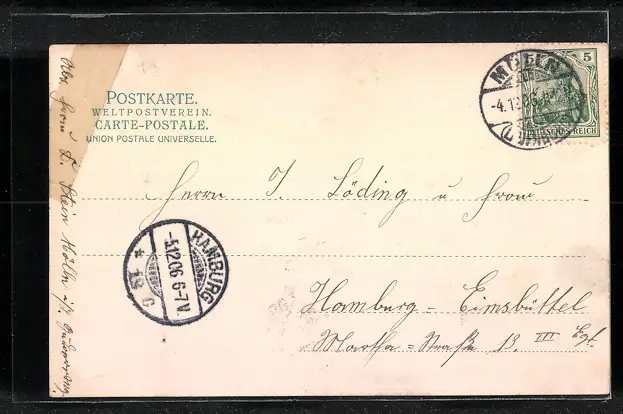 POSTKARTE.
WELTPOSTVEREIN.
CARTE-POSTALE.
UNION POSTALE UNIVERSELLE.
MÖLLN
-4.12.06
5
DEUTSCHES REICH
Herrn J. Löding u Frau
HAMBURG
-5.12.06 6-7V
* 19 c
Hamburg - Eimsbüttel
Martha-Straße 13. III Egt.
Abs. Frau L. Stein Mölln i/L